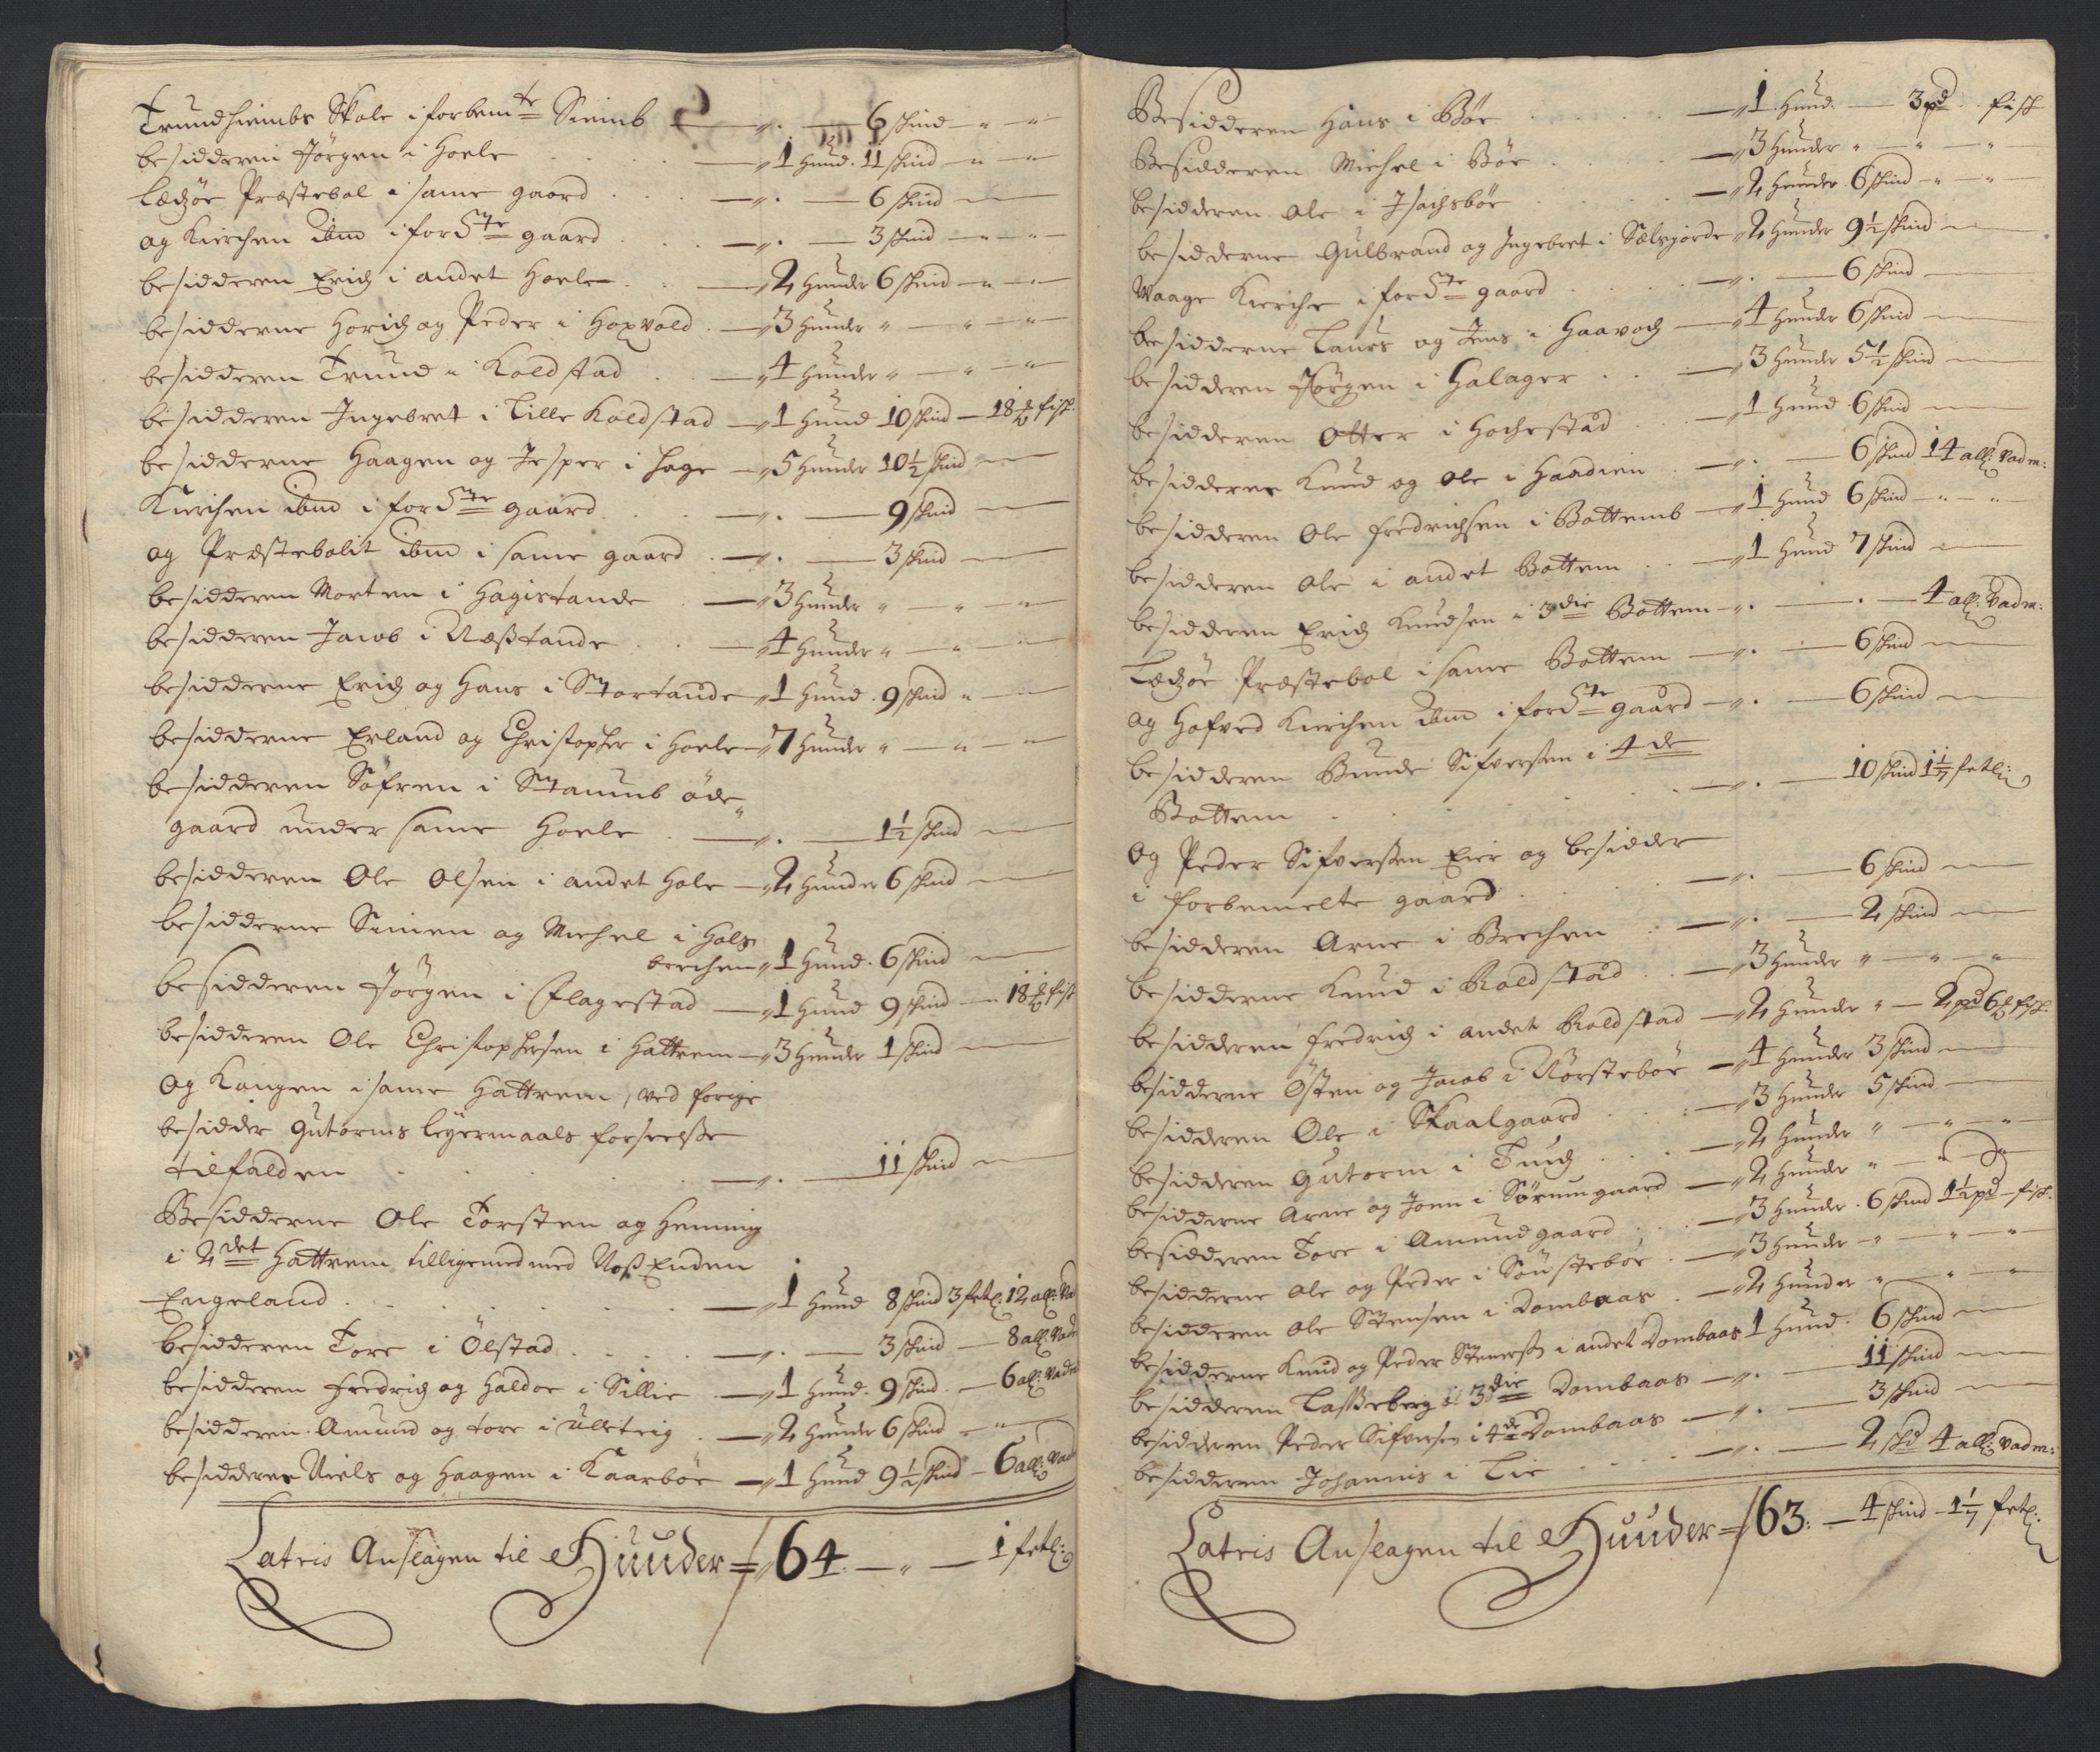 Trundhiembs Skole i forbemte Siemb — „ . — 6 skind — „ — „
besidderen Jörgen i Hoele . . . — „ 1 Hund . 11 skind — „ — „
Ledsöe Præstebol i samme gaard . . — „ . — 6 skind —
og Kierchen ibm i fordte gaard . . — „ . — 3 skind — „ — „
besidderen Erich i andet Hoele . . — „ 2 Hunder 6 skind — „ — „
besidderne Horich og Peder i Hoxvold . — „ 3 Hunder „ — „ — „
besidderen Trund i Koldstad . . — „ 4 Hunder „ — „ — „
besidderen Ingebret i Lille Koldstad — „ 1 Hund 10 skind — 18 fisk
besidderne Haagen og Jesper i Hage — „ 5 Hunder 10½ skind —
Kierchen ibm i fordte gaard . . — „ . — 9 skind —
og Præstebolit ibm i samme gaard . — „ . — 3 skind —
besidderen Morten i Hagistande . — „ 3 Hunder „ — „ — „
besidderen Jacob i Næstande . . — „ 4 Hunder „ — „ —
besidderne Erich og Hans i Stortande — „ 1 Hund . 9 skind „ —
besidderne Erland og Christopher i Hoele — „ 7 Hunder „ — „ — „
besidderen Söfren i Stamnb öde
gaard under samme Hoele . — „ . — 1½ skind —
besidderen Ole Olsen i andet Hole — „ 2 Hunder 6 skind —
besidderne Simen og Michel i Hols
brechen „ 1 Hund . 6 skind —
besidderen Jörgen i Flagestad — „ 1 Hund 9 skind — „ 18 fisk
besidderen Ole Christophersen i Hattrem — „ 3 Hunder 1 skind —
Og Kongen i samme Hattrem, ved forige
besidder Gutorms leyermaals forseelsse
tilfalden . . . — „ . — 11 skind —
Besidderne Ole Torsten og Henning
i 2det Hattrem tilligemed med Noss Enden
Engeland . . . . — „ 1 Hund 8 skind 3 fetl: 12 all: Vad
besidderen Tore i Ölstad . . . — „ . — 3 skind — 8 all: Vadm
besidderen Fredrich og Haldor i Sillie . — „ 1 Hund . 9 skind . — 6 all: Vadm
besidderen Amund og Tore i Ulletrig . — „ 2 Hunder 6 skind — „ —
besidderer Niels og Haagen i Kaarböe — „ 1 Hund 9½ skind — 6 all: Vad
Latris Anslagen til Huuder = „ 64 . — „ — 1 fetl:
Besidderen Hans i Böe . . . . — „ 1 . Hund . — 3 pd . . fisk
Besidderen Michel i Böe . . . — „ 3 Hunder „ — „ — „
besidderen Ole i Isachsböe . . . — „ 2 Hunder . 6 skind — „ — „
besidderne Gulbrand og Ingebret i Selsjorde „ 2 Hunder 9½ skind —
Waage Kierche i fordte gaard . . . — „ . — 6 skind —
besidderne Laurs og Jens i Haavoch — „ 4 Hunder 6 skind —
besidderen Jörgen i Halager . . . — „ 3 Hunder 5½ skind —
besidderen Otter i Hochestad . . . — „ 1 Hund 6 skind —
besidderer Knud og Ole i Haadien . — „ . — 6 skind 14 all: Vadm:
besidderen Ole Fredrichsen i Bottemb — „ 1 Hund 6 skind — „ — „
besidderen Ole i andet Bottem . . — „ 1 Hund 7 skind —
besidderen Erich Knudsen i 3die Bottem — „ . — . — 4 all: Vadm:
Ledsöe Præstebol i samme Bottem — „ . — 6 skind —
og Hofved Kierchen ibm i fordte gaard — „ . — 6 skind —
besidderen Bunde Sifversen i 4de
Bottem . . . . — „ . — 10 skind 1 1/7 fetl:
Og Peder Sifversen Eier og besidder
i forbemelte gaard . . . . — „ . — 6 skind —
besidderen Arne i Brechen . . — „ . — 2 skind —
besidderne Knud i Roldstad . . — „ 3 Hunder „ — „ — „
besidderen Fredrich i andet Roldstad — „ 2 Hunder „ — 2 pd 6 fisk
besidderne Östen og Jacob i Nörsteböe — „ 4 Hunder 3 skind —
besidderen Ole i Skaalgaard . . . — „ 3 Hunder 5 skind —
besidderen Gutorm i Tund . . . — „ 2 Hunder „ — „ — „
besidderne Arne og Joen i Sörumgaard — „ 2 Hunder „ — „ — „
besidderen Tore i Amundgaard . . . — „ 3 Hunder . 6 skind 1½ pd — fisk .
besidderne Ole og Peder i Sönsteböe, . — „ 3 Hunder — „ — „ — „
besidderen Ole Stensen i Dombaas . — „ 2 Hunder „ — „ — „
besidderne Knud og Peder Stenerss i andet Dombaas 1 Hund . 6 skind —
besidderen Lasseberg i 3die Dombaas — „ . — 11 skind —
besidderen Peder Sifversen i 4de Dombaas — „ . — 3 skind —
besidderen Johannis i Lie . . . . — „ . — 2 skd 4 all: Vadm:
Latris Anslagen til Huuder = „ 63 : — 4 skind — 1 1/7 fetl: